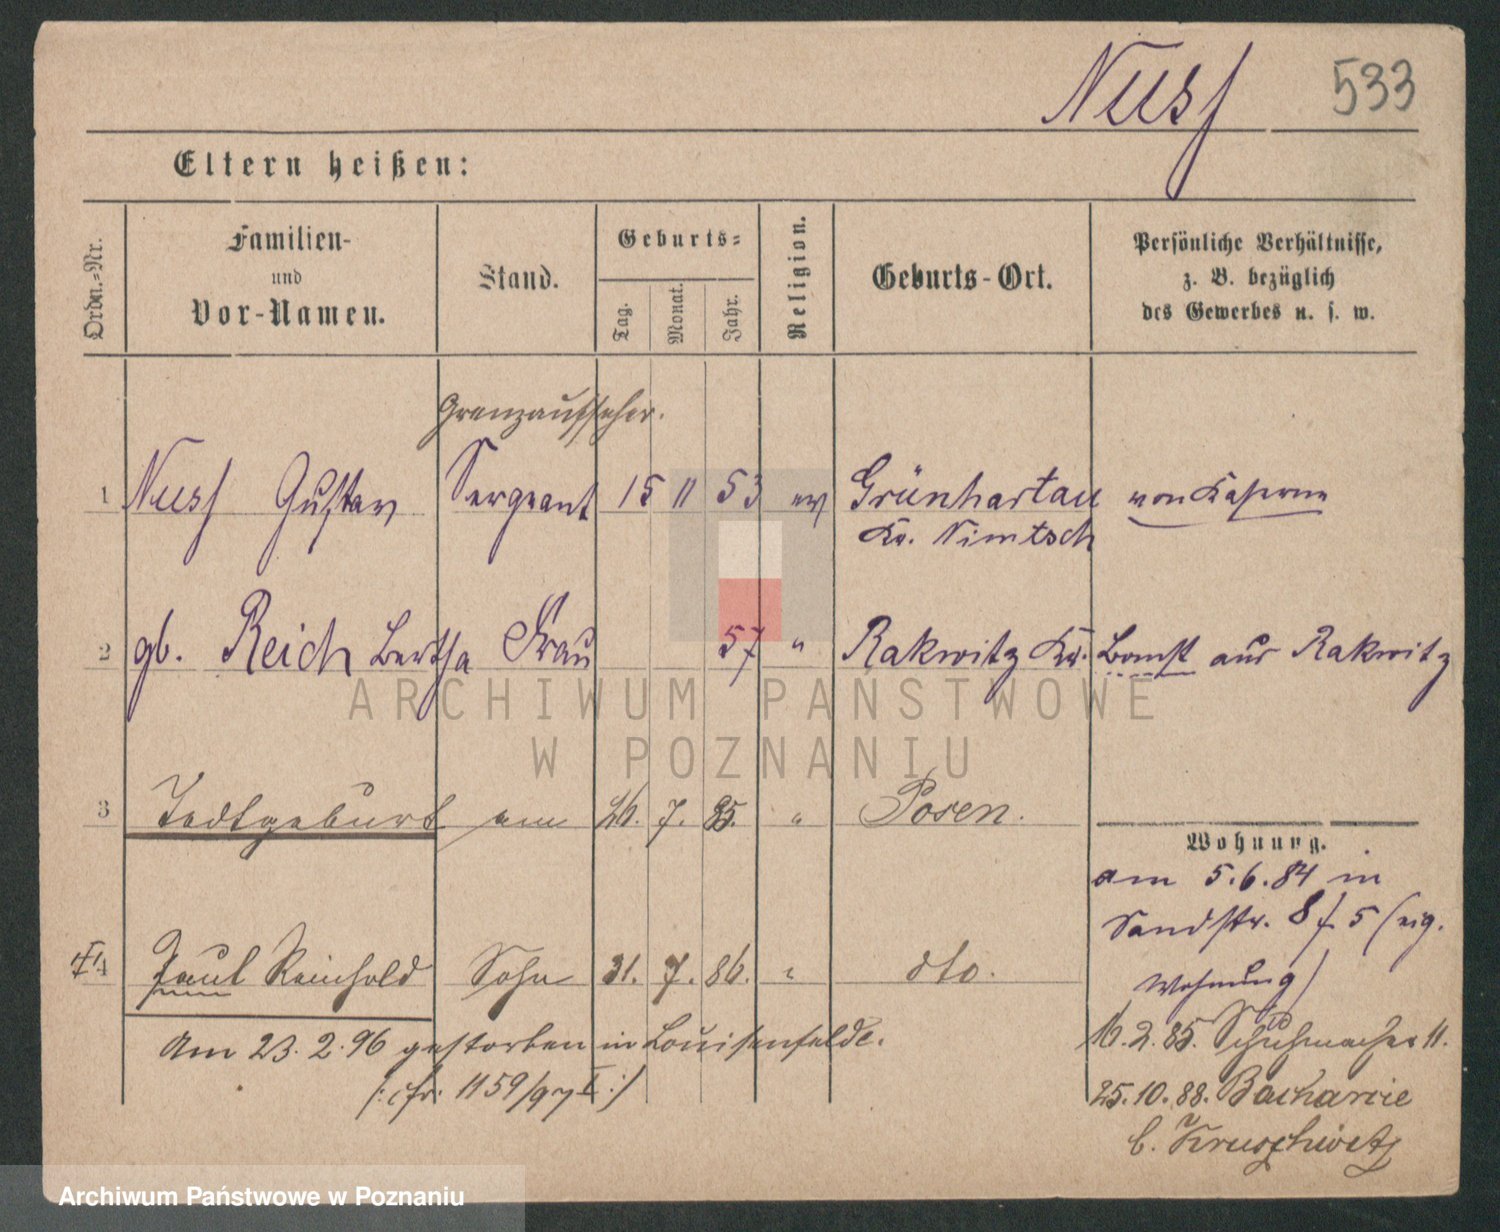 Nuss 533
Eltern heißen:
Ordn.-Nr.
Familien-
und
Vor-Namen.
Stand.
Geburts-
Tag.
Monat.
Jahr.
Religion.
Geburts-Ort.
Persönliche Verhältnisse,
z. B. bezüglich
des Gewerbes u. s. w.
Grenzaufseher.
1 Nuss Gustav Sergeant 15 11 53 ev Grünhartau von
Kr. Nimtsch
2 gb. Reich Bertha Frau 57 " Rakwitz Kr. Bomst aus Rakwitz
ARCHIWUM PAŃSTWOWE
W POZNANIU
3 Todtgeburt am 26. 7. 85. " Posen.
Wohnung.
am 5.6.84 in
Sandstr. 8 f. 5 (eig.
4 Paul Reinhold Sohn 31. 7. 86. " dto.
Wohnung)
Am 23.2.96 gestorben in Louisenfelde.
16.2.85. Schuhmacher 11.
/: cfr. 1159/97 I :/
25.10.88. Bacharcie
b. Kruschwitz
Archiwum Państwowe w Poznaniu